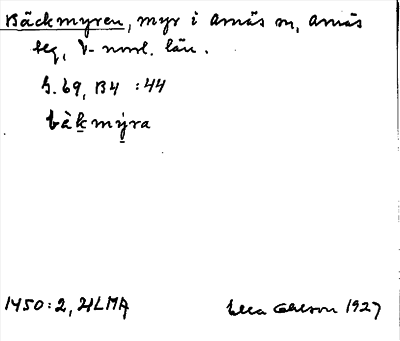 Bäckmyren, myr i Arnäs sn, Arnäs
tg, V-norrl. län.
S. 69, B4 :44
bàk̲mý̲ra
1450:2, ULMA
Ohlson 1927